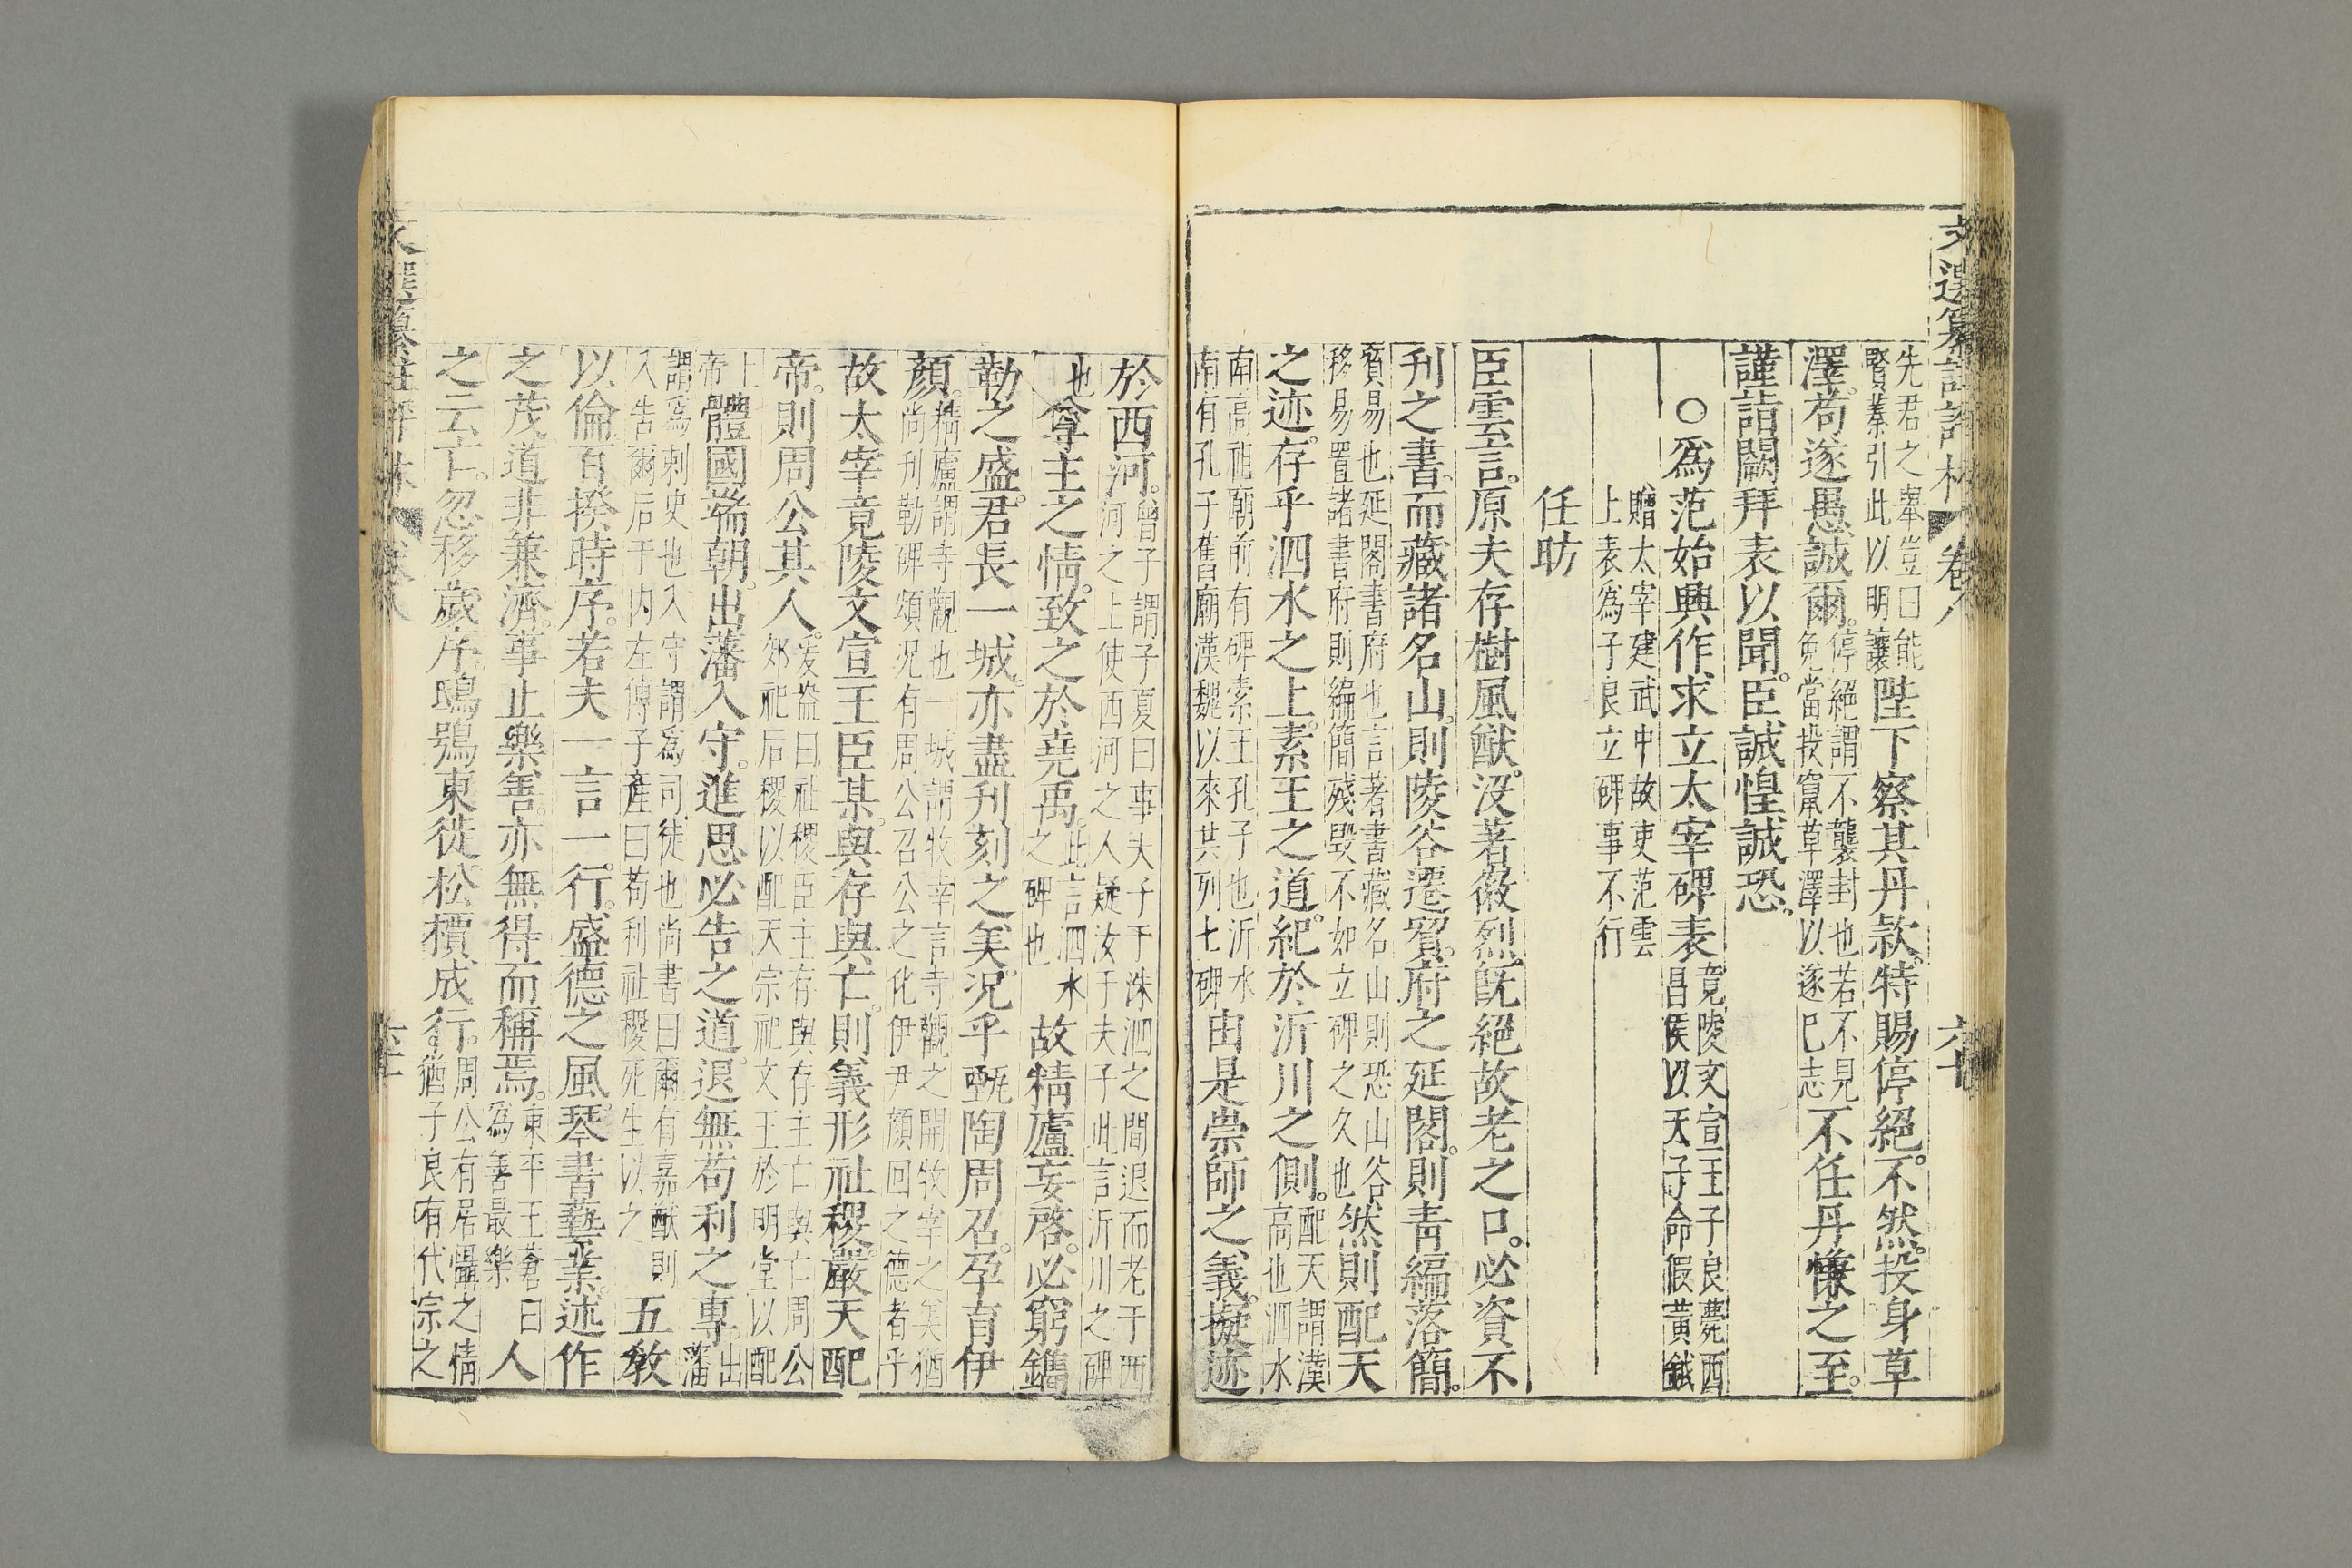 文選纂註評林 卷八 六十
先君之舉豈曰能
賢蓁引此以明讓
陛下察其丹款。特賜停絕。不然。投身草
澤。苟遂愚誠爾。
停絕謂不襲封也若不見
免當投竄草澤以遂巳志
不任丹慊之至。
謹詣闕拜表以聞。臣誠惶誠恐。
○爲范始興作求立太宰碑表
竟陵文宣王子良薨西
昌侯以天子命假黃鉞
贈太宰建武中故吏范雲
上表為子良立碑事不行
任昉
臣雲言。原夫存樹風猷。沒著徽烈。旣絕故老之口。必資不
刊之書。而藏諸名山。則陵谷遷貿。府之延閣。則靑編落簡。
貿易也延閣書府也言著書藏名山則恐山谷
移易置諸書府則編簡殘毀不如立碑之久也
然則配天
之迹。存乎泗水之上。素王之道。紀於沂川之側。
配天謂漢
高也泗水
南高祖廟前有碑素王孔子也沂水
南有孔子舊廟漢魏以來共列七碑
由是崇師之義。擬迹
於西河。
曾子謂子夏曰事夫子于洙泗之閒退而老于西
河之上使西河之人疑汝于夫子此言沂川之碑
也
尊主之情。致之於堯禹。
此言泗水
之碑也
故精廬妄啓。必窮鐫
勒之盛。君長一城。亦盡刊刻之美。況乎甄陶周召。孕育伊
顏。
精廬謂寺觀也一城謂牧宰言寺觀之開牧宰之美猶
尚刊勒碑頌況有周公召公之化伊尹顏回之德者乎
故太宰竟陵文宣王臣某。與存與亡。則義形社稷。嚴天配
帝。則周公其人。
爰盎曰社稷臣主存與存主亡與亡周公
郊祀后稷以配天宗祀文王於明堂以配
上
帝
體國端朝。出藩入守。進思必告之道。退無苟利之專。
出
藩
謂爲刺史也入守謂爲司徒也尚書曰爾有嘉猷則
入告爾后于内左傳子產曰苟利社稷死生以之
五敎
以倫。百揆時序。若夫一言一行。盛德之風。琴書藝業。述作
之茂。道非兼濟。事止樂善。亦無得而稱焉。
東平王蒼曰
為善最樂
人
之云亡。忽移歲序。鴟鴞東徙。松檟成行。
周公有居攝之情
猶子良有代宗之
文選纂註評林 卷八